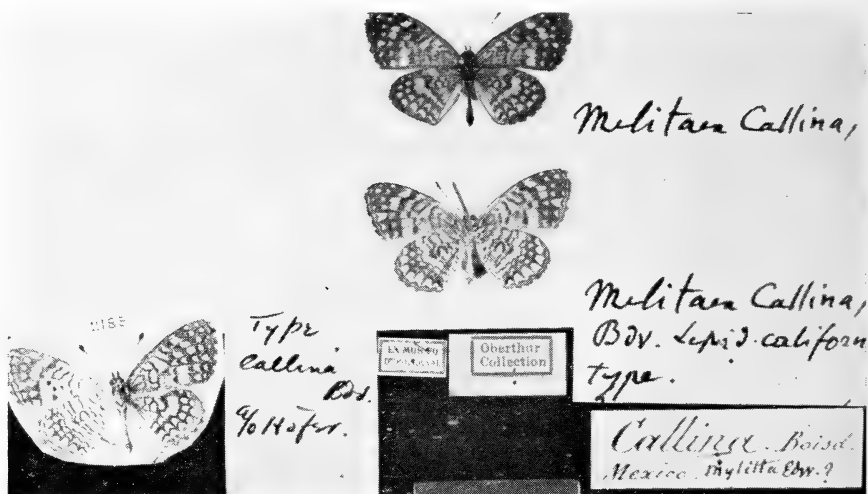 Melitaea Callina,
Melitaea Callina,
Bdv. Lepid. californ
Type.
Type
Callina
Bdv.
a/o Höfer.
EX MUSEO
Oberthur
Collection
Callina Boisd.
Mexico. Mylitta Edw.?